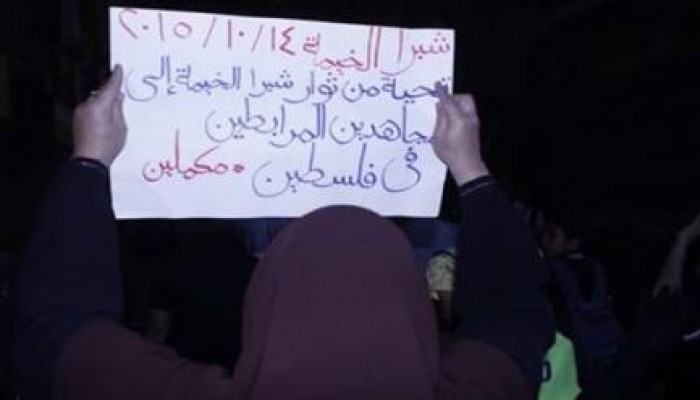 شبرا الخيمة ٢٠١٥/١٠/١٤
تحية من ثوار شبرا الخيمة إلى
مجاهدين المرابطين
في فلسطين • مكملين